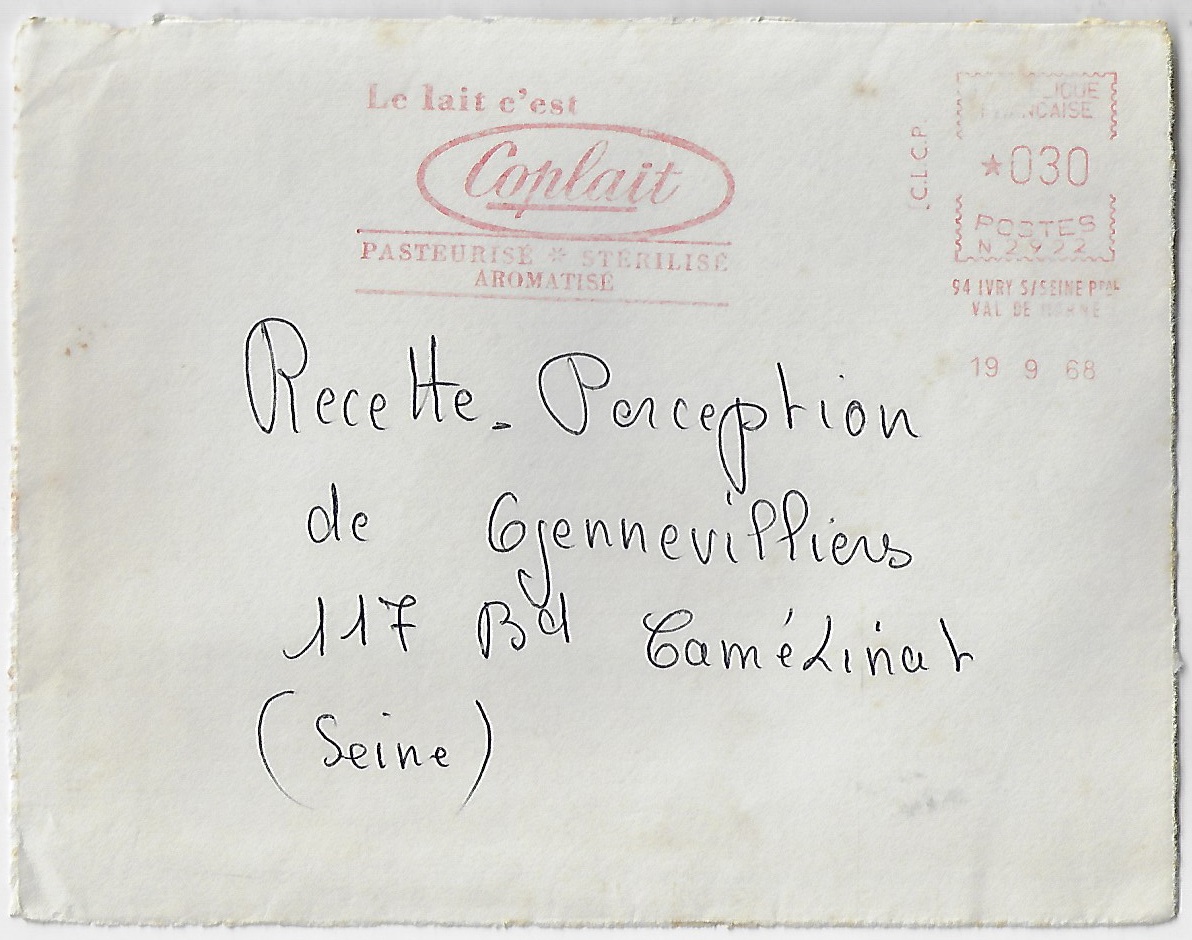 Le lait c'est
Coplait
PASTEURISÉ * STÉRILISÉ
AROMATISÉ
C.L.C.P.
FRANCAISE
*030
POSTES
N 2922
94 IVRY S/SEINE PPAL
VAL DE MARNE
19 9 68
Recette-Perception
de Gennevilliers
117 Bd Camélinat
(Seine)